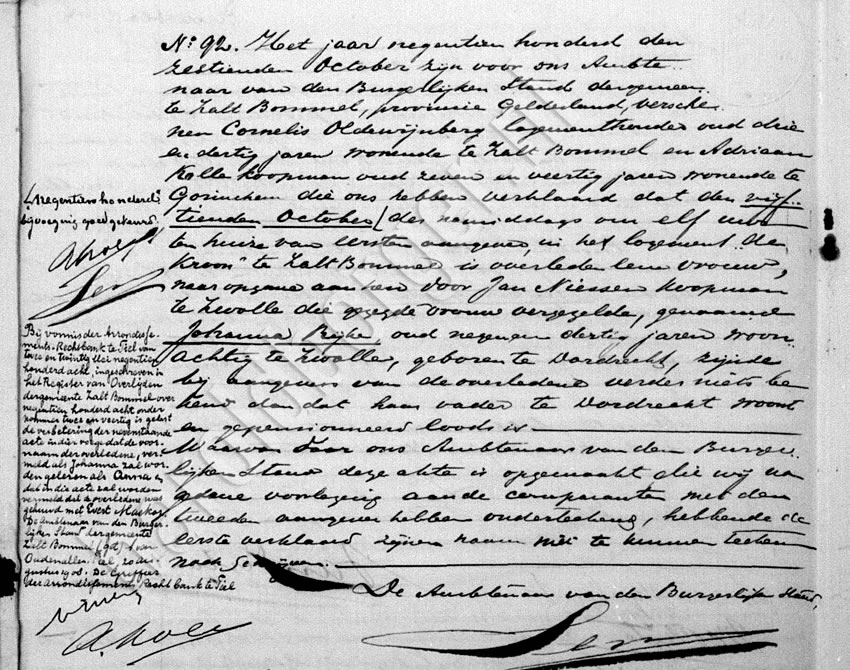 No. 92. Het jaar negentien honderd den
zestienden October zijn voor ons Ambte-
naar van den Burgerlijken Stand der gemeen
te Zalt Bommel, provincie Gelderland, versche
nen Cornelis Oldewijnberg logementhouder oud drie
en dertig jaren wonende te Zalt Bommel en Adriaan
Kolle koopman oud zeven en veertig jaren wonende te
Gorinchem die ons hebben verklaard dat den vijf-
tienden October / des namiddags om elf uur
ten huize van eersten aangever, in het logement "de
Kroon" te Zalt Bommel is overleden eene vrouw,
naar opgave aan hen door Jan Niessen koopman
te Zwolle die gezegde vrouw vergezelde, genaamd
Johanna Rijke, oud negen en dertig jaren woon
achtig te Zwolle, geboren te Dordrecht, zijnde
bij aangevers van de overledene verder niets be
kend dan dat haar vader te Dordrecht woont
en gepensioneerd loods is
Waarvan door ons Ambtenaar van den Burger
lijken Stand deze akte is opgemaakt die wij na
gedane voorlezing aan de comparanten met den
tweeden aangever hebben onderteekend, hebbende de
eerste verklaard zijnen naam niet te kunnen teeken
noch schrijven.
De Ambtenaar van den Burgerlijken Stand,
/ negentien honderd
bijvoeging goedgekeurd.
A Kolle
Bij vonnis der Arrondisse-
ments-Rechtbank te Tiel van
twee en twintig Mei negentien
honderd acht, ingeschreven in
het Register van Overlijden
der gemeente Zalt Bommel over
negentien honderd acht onder
nommer twee en veertig is gelast
de verbetering der nevenstaande
acte in dier voege dat de voor-
naam der overledene, ver-
meld als Johanna zal wor-
den gelezen als Anna en
dat in die acte zal worden
vermeld dat de overledene was
gehuwd met Evert Mackor.
De Ambtenaar van den Burger-
lijken Stand der gemeente
Zalt Bommel (gd) J. van
Oudenallen. Tiel 20 au-
gustus 1908. De Griffier
der Arrondissements Rechtbank te Tiel
A. Kolle